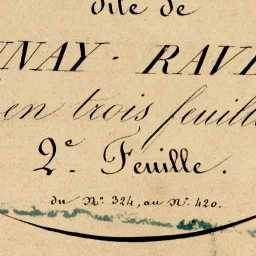 dite de
NAY - RAV
en trois feuill
2e Feuille.
du No. 324, au No. 420.